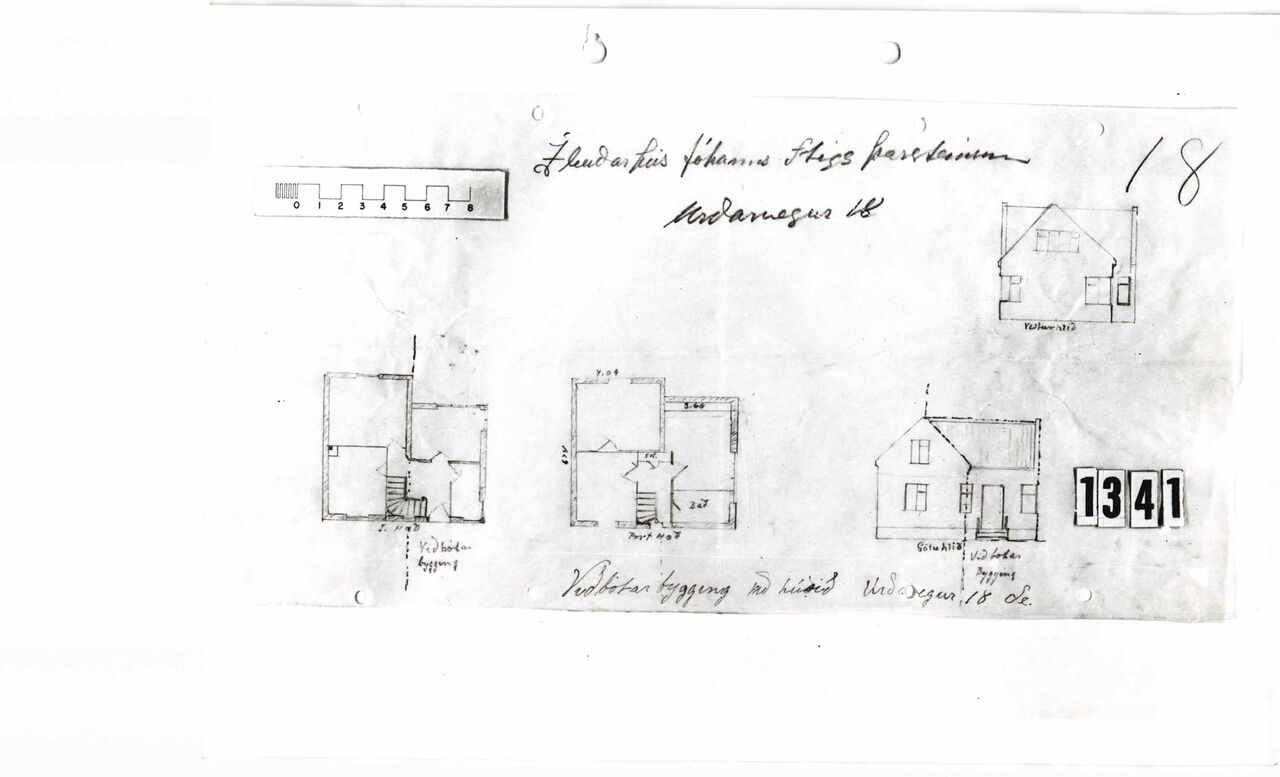 Íbúðarhús Jóhanns Stígs Þorsteinssonar
Urðavegur 18
18
0 1 2 3 4 5 6 7 8
Vesturhlið
7.04
3.60
Bað
I. Hæð
Port Hæð
Viðbótar
bygging
Götuhlið
Viðbótar
bygging
1341
Viðbótar bygging við húsið Urðavegur, 18 Ve.